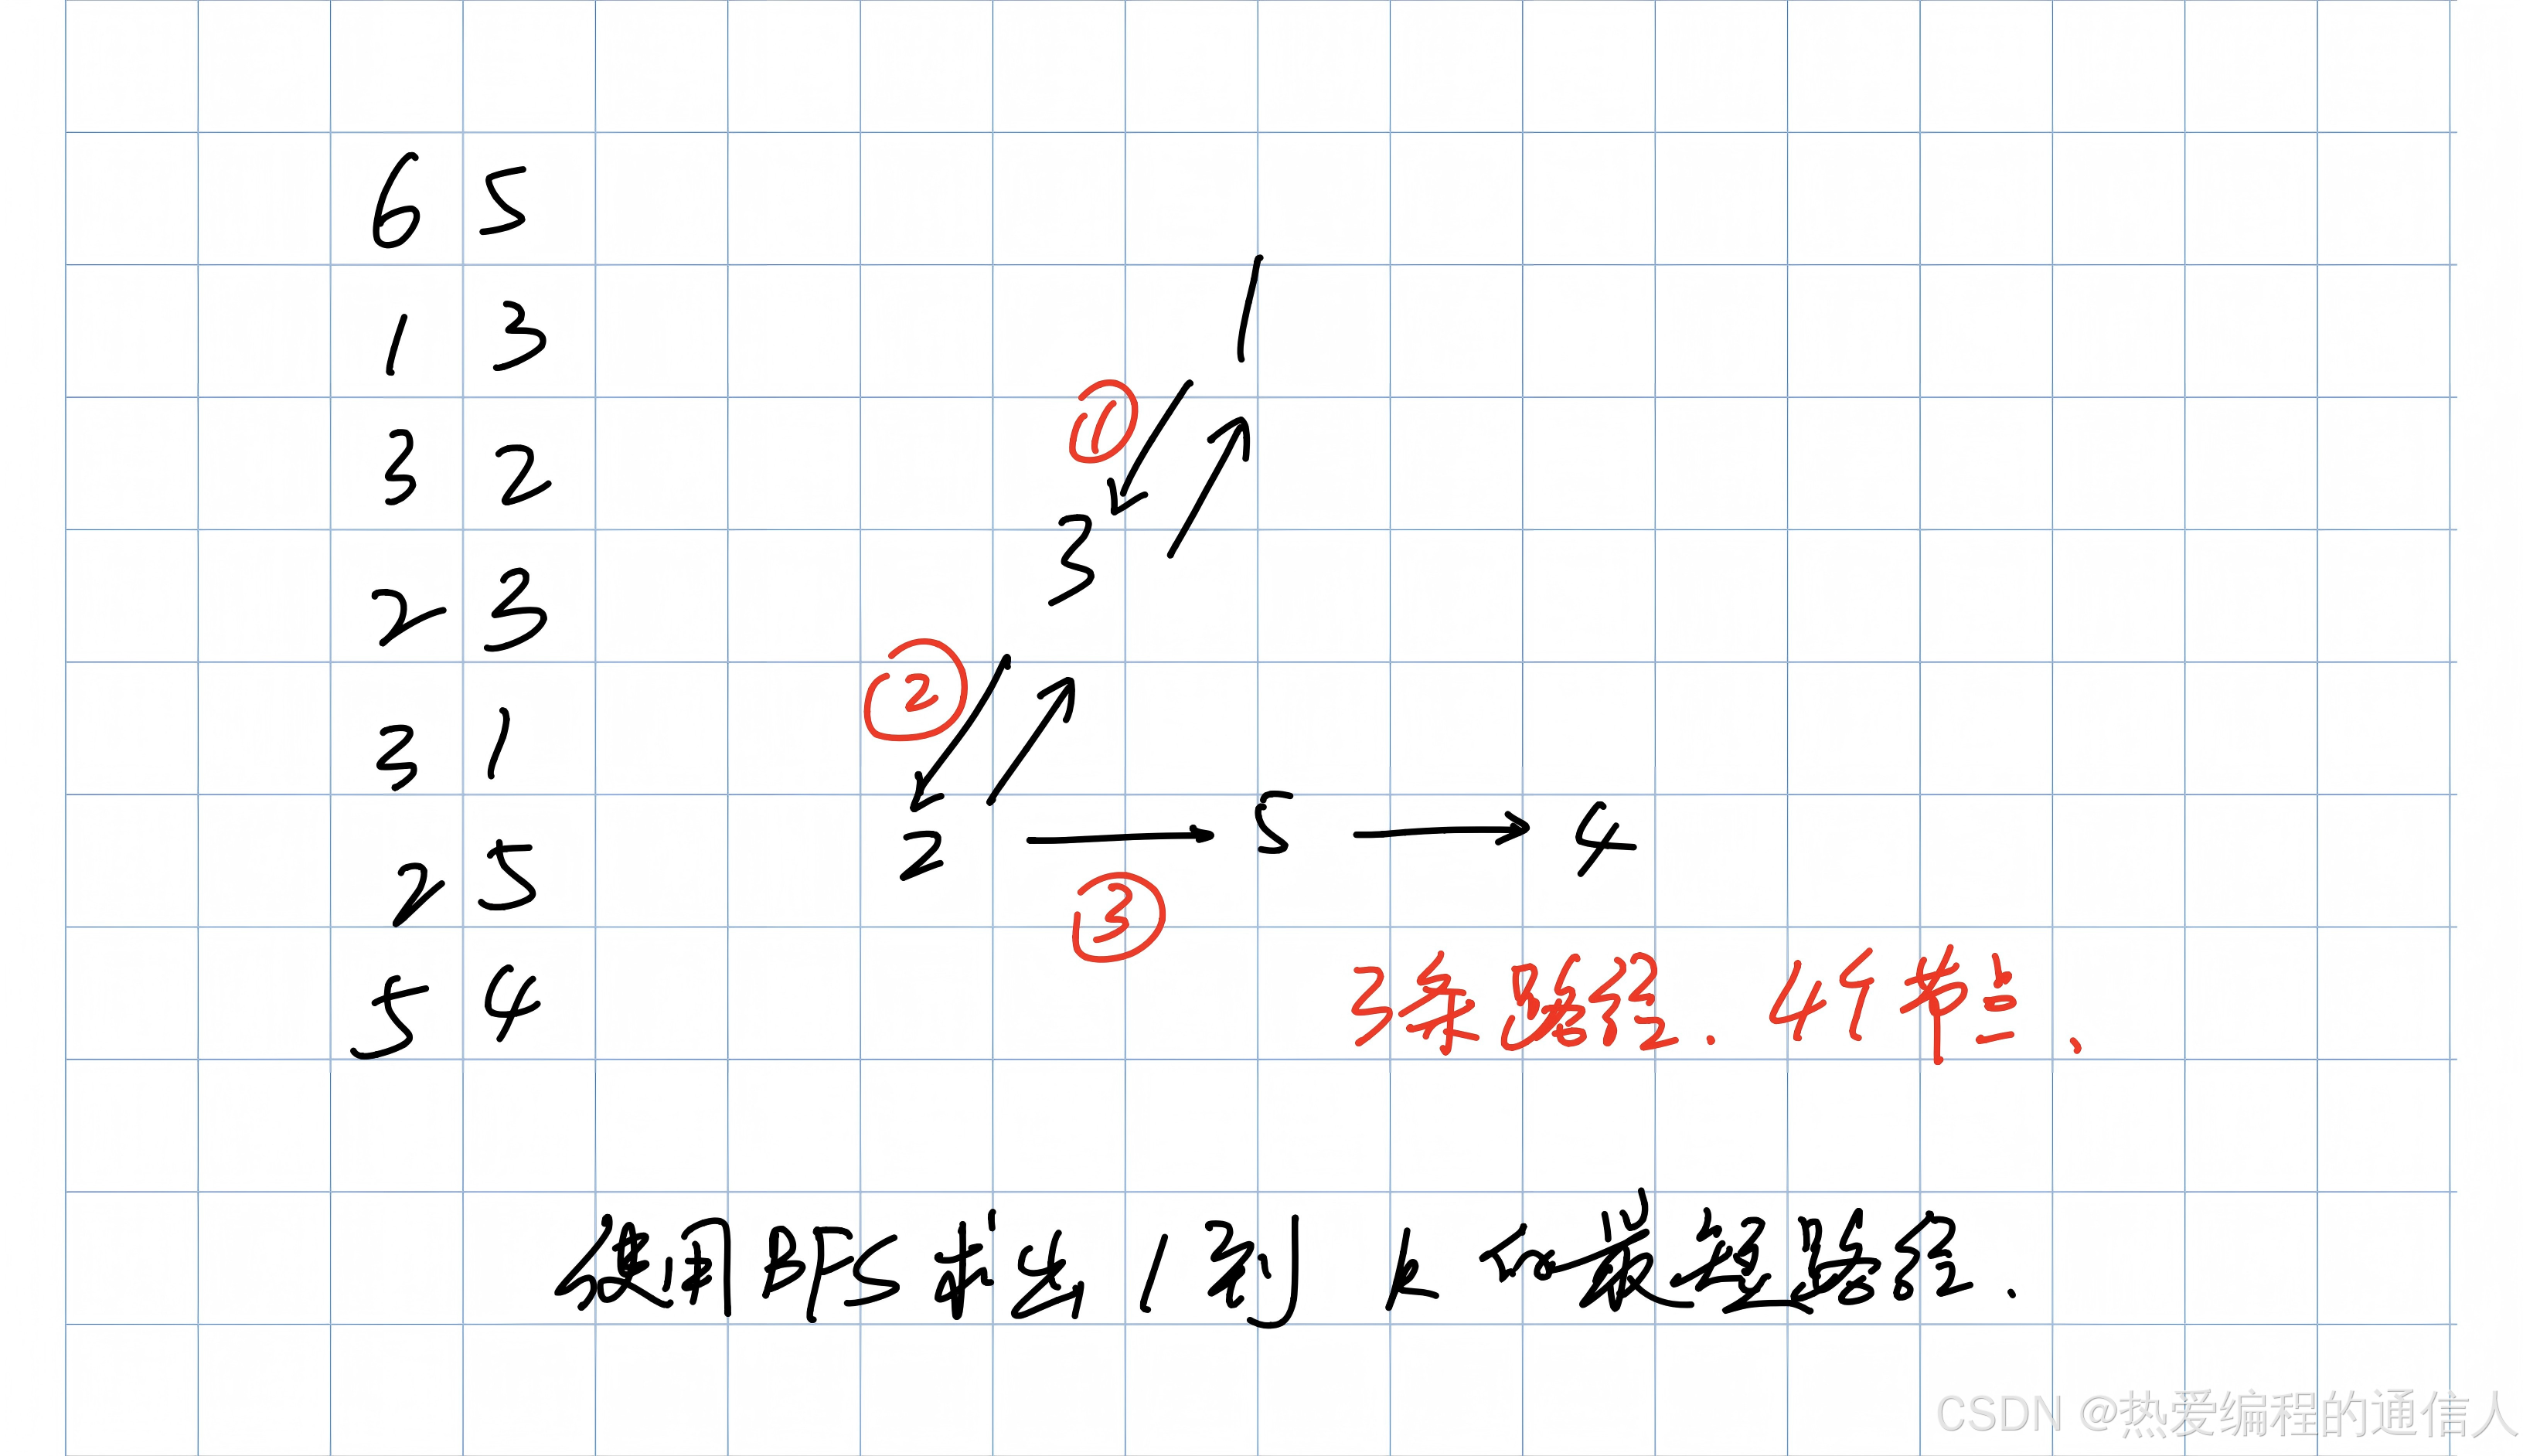 6 5
1 3
3 2
2 3
3 1
2 5
5 4
1
①
3
②
2 5 4
③
3条路径. 4个节点.
使用BFS求出1到k的最短路径.
CSDN @热爱编程的通信人